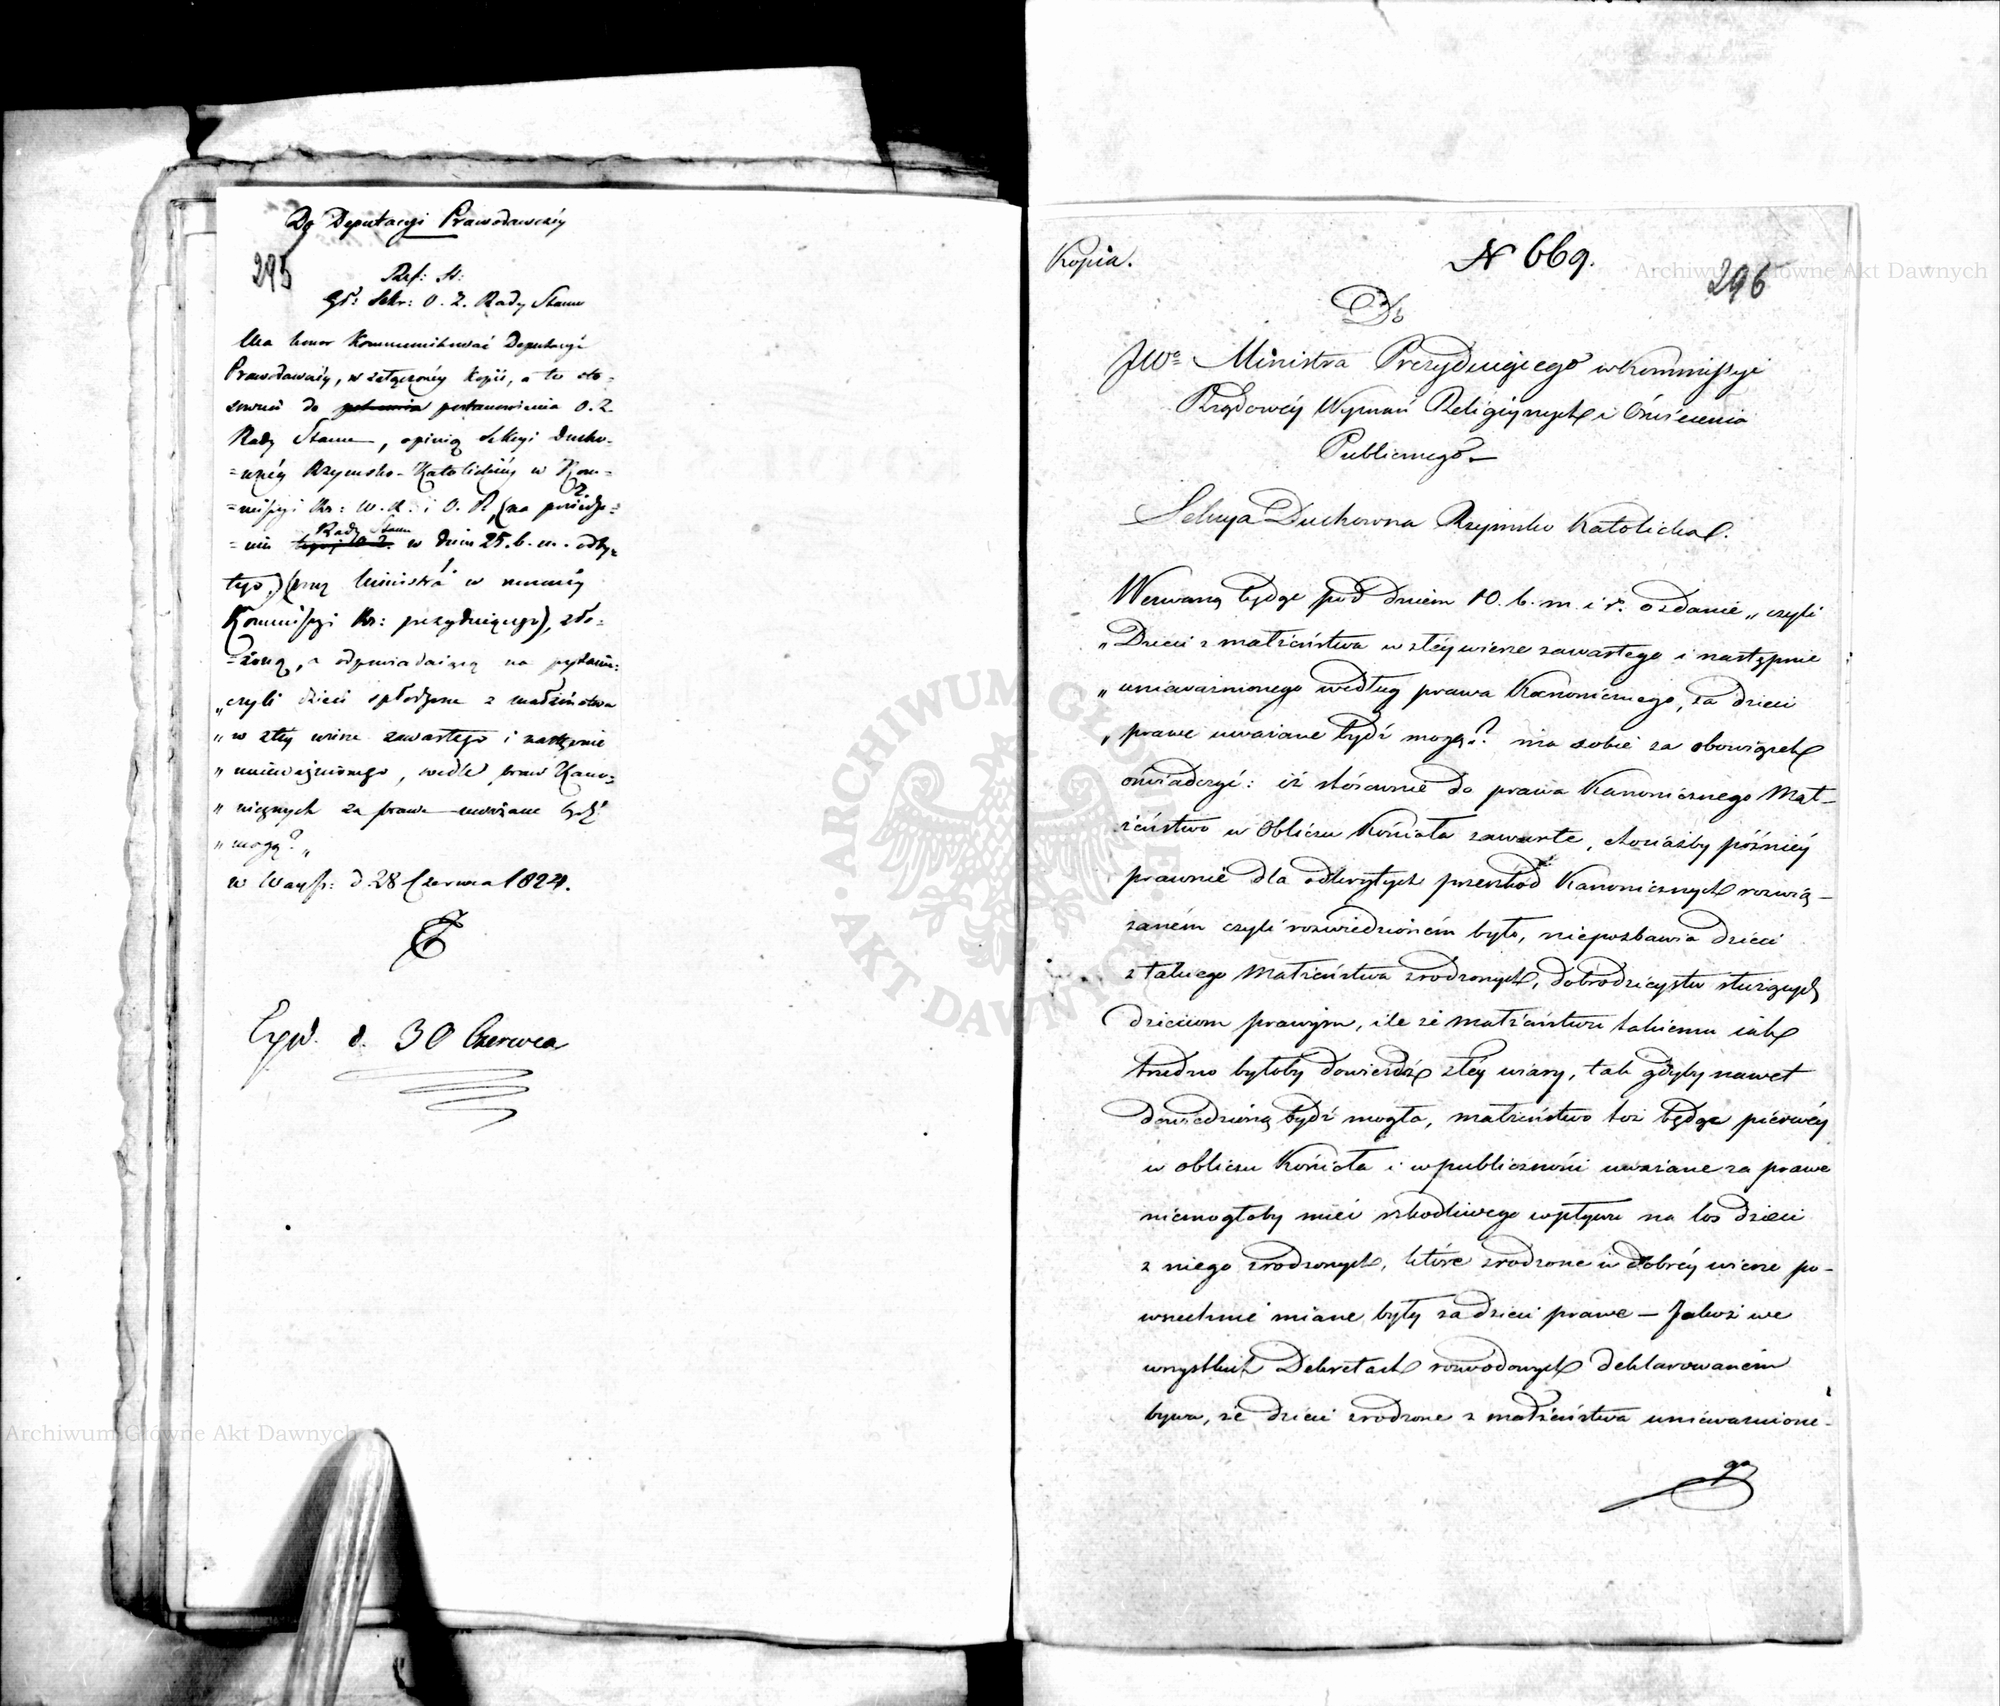 Do Deputacyi Prawodawczéy
295
Ref: St:
Gł: Sekr: O. Z. Rady Stanu
Ma honor kommunikować Deputacyi
Prawodawczéy, w załączonéy kopii, a to sto-
sownie do postanowienia O. Z.
Rady Stanu, opinią Sekcyi Ducho-
=wnéy Rzymsko-Katolickiéy w Kom=
=missyi Rz: W. R. i O. P. (na posiedze=
Rady Stanu
=niu w dniu 25. b. m. odby=
tego,) (przez Ministra w rzeczonéy
Kommissyi Rz: prezyduiącego), zło=
=żoną, a odpowiadaiącą na pytanie:
„czyli dzieci spłodzone z małżeństwa
„w złéy wierze zawartego i następnie
„unieważnionego, wedle praw Kano=
„nicznych za prawe uważane bydź
„mogą?„
w Warsz: d. 28 Czerwca 1824.
Exp. d. 30 Czerwca
Kopia.
N 669.
296
Do
JWo Ministra Prezyduiącego w Kommissyi
Rządowéy Wyznań Religiynych i Oświecenia
Publicznego
Sekcya Duchowna Rzymsko Katolicka.
Wezwaną będąc pod dniem 10. b. m. i r. o zdanie „czyli
„Dzieci z małżeństwa w złéy wierze zawartego i następnie
„unieważnionego według prawa Kanonicznego, za dzieci
„prawe uważane bydź mogą? ma sobie za obowiązek
oświadczyć: iż stósownie do prawa Kanonicznego Mał-
żeństwo w Obliczu Kościoła zawarte, chociażby późniéy
prawnie dla odkrytych przeszkód Kanonicznych rozwią-
zaném czyli rozwiedzioném było, niepozbawia dzieci
z takiego Małżeństwa zrodzonych, dobrodzieystw służących
dzieciom prawym, ile że małżeństwu takiemu iak
trudno byłoby dowieśdź złéy wiary, tak gdyby nawet
dowiedzioną bydź mogła, małżeństwo toż będąc piérwéy
w obliczu Kościoła i w publiczności uważane za prawe
niemogłoby mieć szkodliwego wpływu na los dzieci
z niego zrodzonych, które zrodzone w dobréy wierze po-
wszechnie miane były za dzieci prawe — Jakoż we
wszystkich Dekretach rozwodowych deklarowaném
bywa, że dzieci zrodzone z małżeństwa unieważnione-
go
Archiwum Główne Akt Dawnych
Archiwum Główne Akt Dawnych
ARCHIWUM GŁÓWNE AKT DAWNYCH